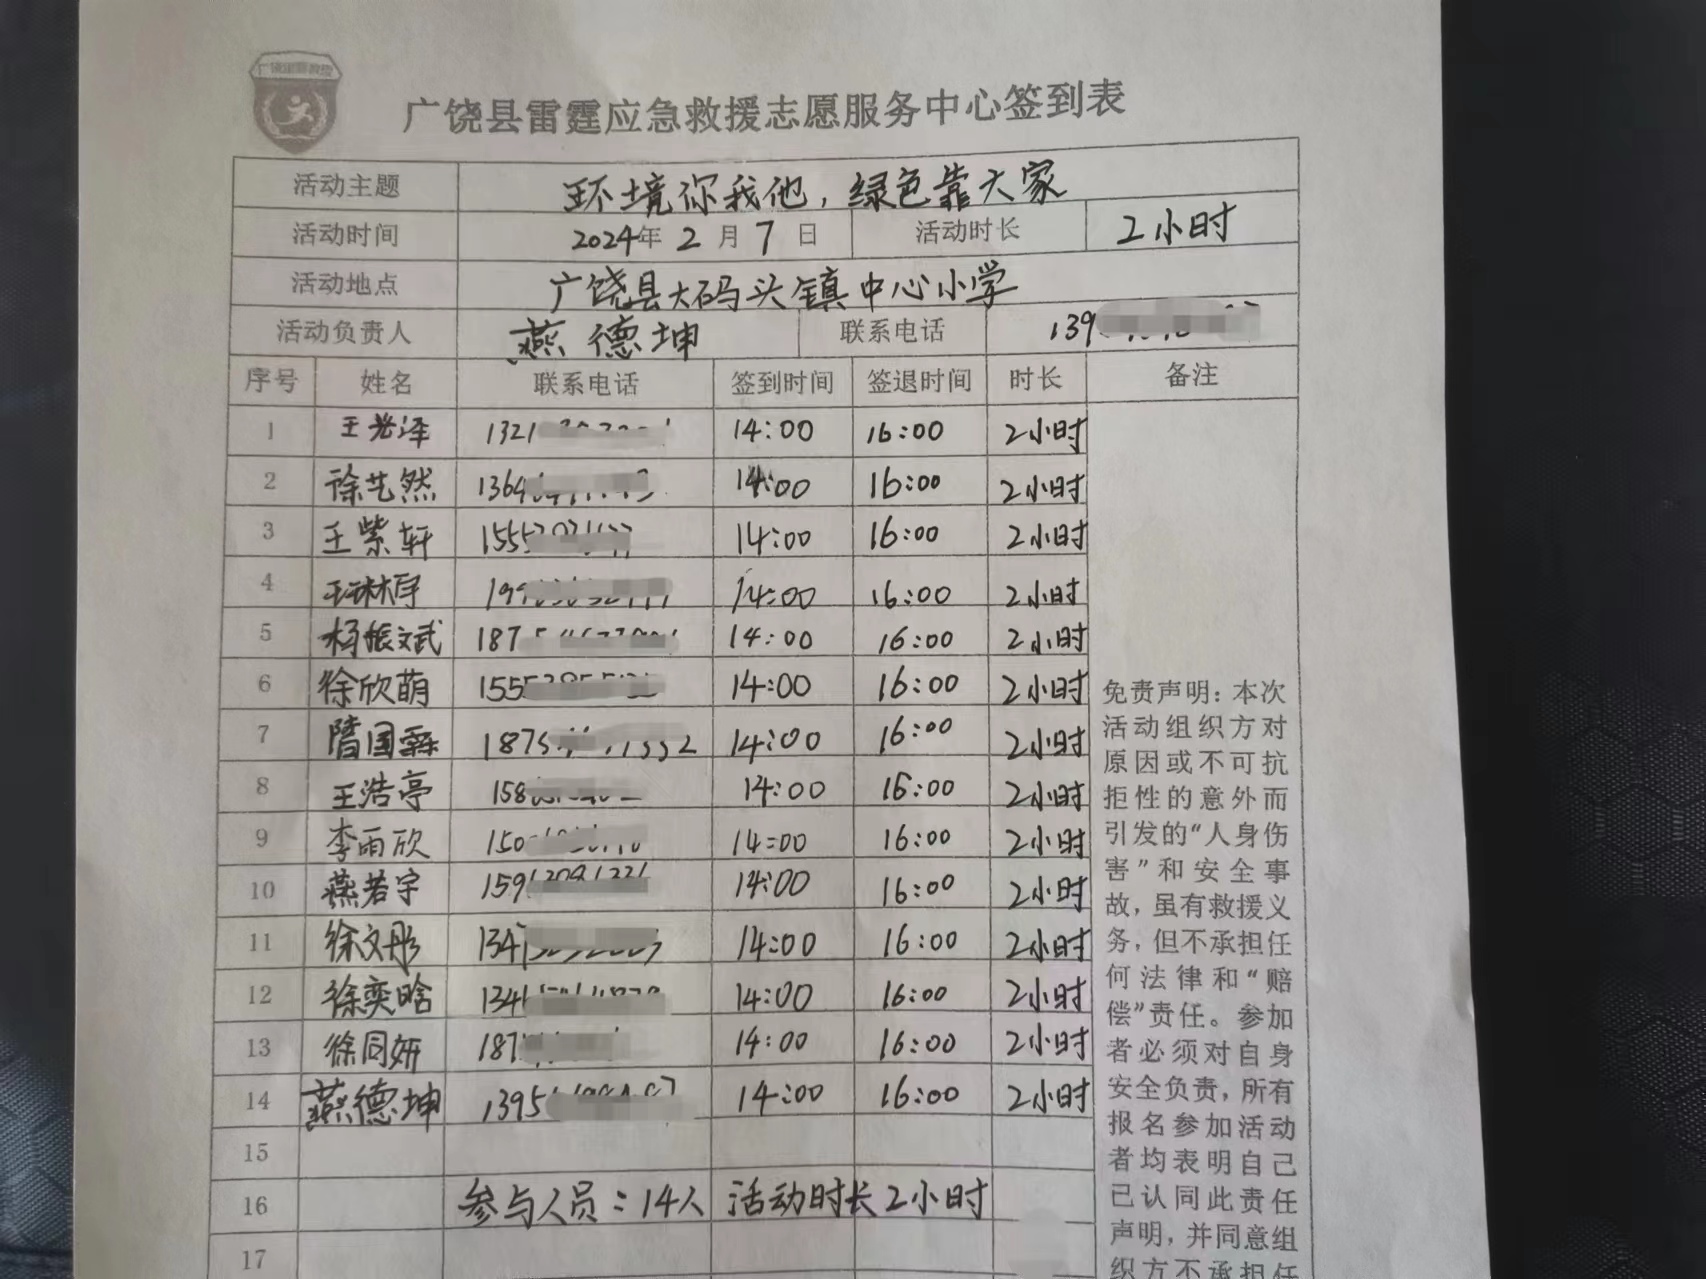 广饶县雷霆应急救援志愿服务中心签到表
活动主题 环境你我他，绿色靠大家
活动时间 2024年 2 月 7 日 活动时长 2小时
活动地点 广饶县大码头镇中心小学
活动负责人 燕德坤 联系电话 139
序号 姓名 联系电话 签到时间 签退时间 时长 备注
1 王 泽 1321 14:00 16:00 2小时
2 徐艺然 1364 14:00 16:00 2小时
3 王紫轩 1555 14:00 16:00 2小时
4 199 14:00 16:00 2小时
5 杨振文武 187 14:00 16:00 2小时
6 徐欣萌 1555 14:00 16:00 2小时
7 隋国霖 1875 14:00 16:00 2小时
8 王浩亭 158 14:00 16:00 2小时
9 李雨欣 150 14:00 16:00 2小时
10 燕若宇 159 14:00 16:00 2小时
11 徐文彤 134 14:00 16:00 2小时
12 徐奕晗 134 14:00 16:00 2小时
13 徐同妍 187 14:00 16:00 2小时
14 燕德坤 1395 14:00 16:00 2小时
15
16 参与人员：14人 活动时长2小时
17
免责声明：本次
活动组织方对
原因或不可抗
拒性的意外而
引发的“人身伤
害”和安全事
故，虽有救援义
务，但不承担任
何法律和“赔
偿”责任。参加
者必须对自身
安全负责，所有
报名参加活动
者均表明自己
已认同此责任
声明，并同意组
织方不承担任